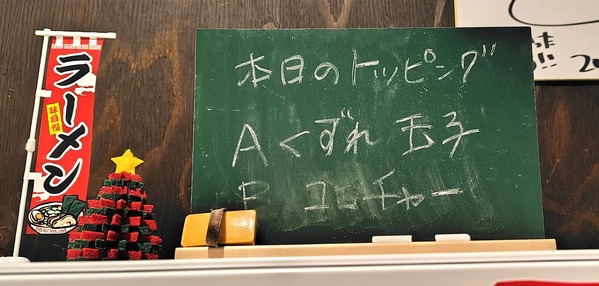 ラーメン
味自慢
本日のトッピング
A くずれ玉子
B コロチャー